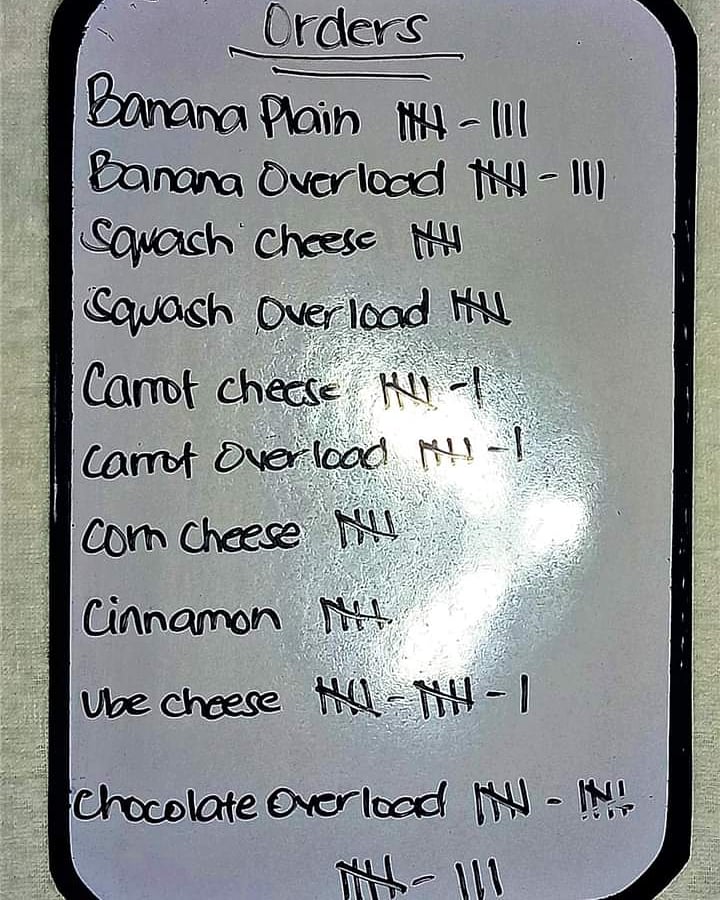 Orders
Banana Plain 𝍸 - |||
Banana Overload 𝍸 - |||
Squash Cheese 𝍸
Squash Overload 𝍸
Carrot cheese 𝍸 - |
Carrot Overload 𝍸 - |
Corn Cheese 𝍸
Cinnamon 𝍸
Ube cheese 𝍸 - 𝍸 - |
Chocolate Overload 𝍸 - 𝍸
𝍸 - |||